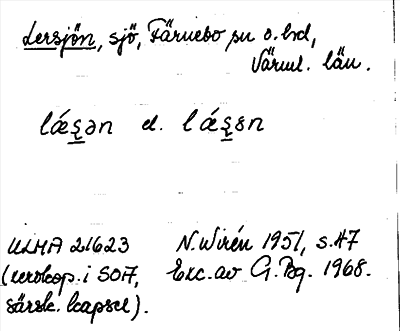 Lersjön, sjö, Färnebo sn o. hd,
Värml. län.
lǽʂ̲ən el. lǽʂ̲ɛn
ULMA 21623 N. Wirén 1951, s. 47
(xeroxkop. i SOA, Exc. av G. Bg. 1968.
särsk. kapsel).